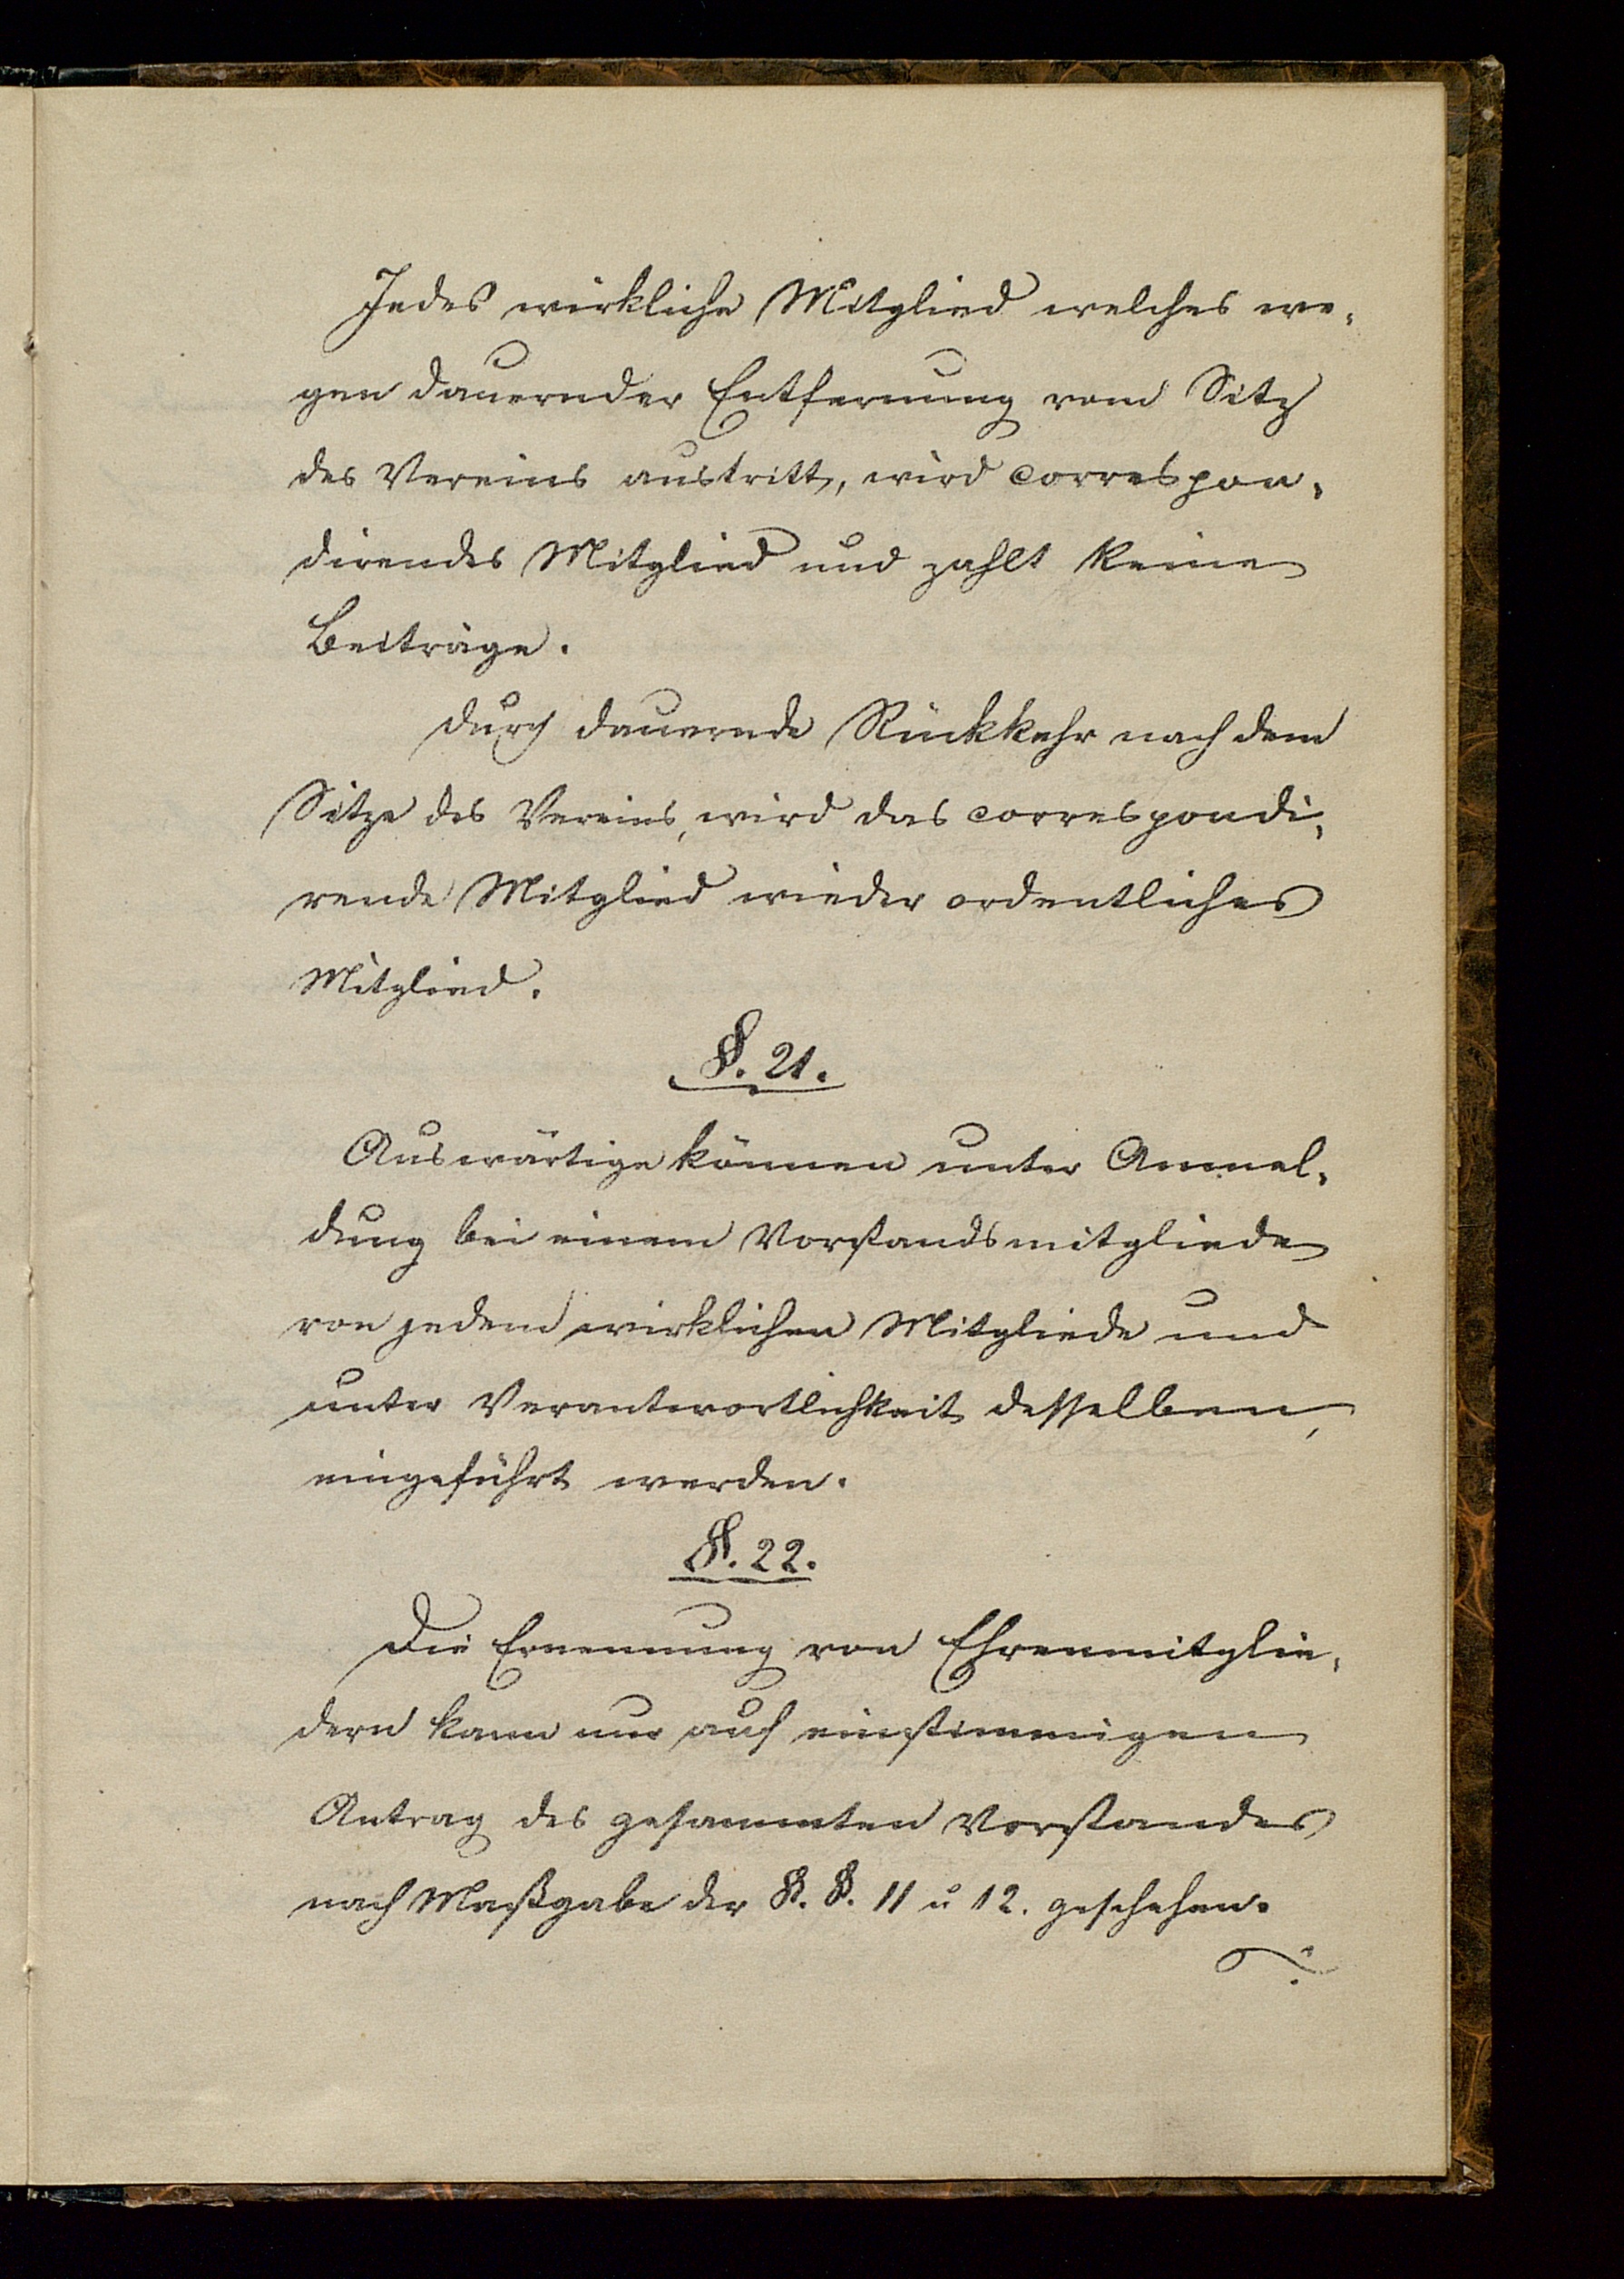 Jedes wirkliche Mitglied welches we-
gen dauernder Entfernung vom Sitz
des Vereins austritt, wird correspon-
direndes Mitglied und zahlt keine
Beiträge.
Durch dauernde Rückkehr nach dem
Sitze des Vereins, wird das correspondi-
rende Mitglied wieder ordentliches
Mitglied.
§. 21.
Auswärtige können unter Anmel-
dung bei einem Vorstandsmitgliede
von jedem wirklichen Mitgliede und
unter Verantwortlichkeit desselben,
eingeführt werden.
§. 22.
Die Ernennung von Ehrenmitglie-
dern kann nur auf einstimmigen
Antrag des gesammten Vorstandes
nach Maßgabe der §. §. 11 u 12. geschehen.